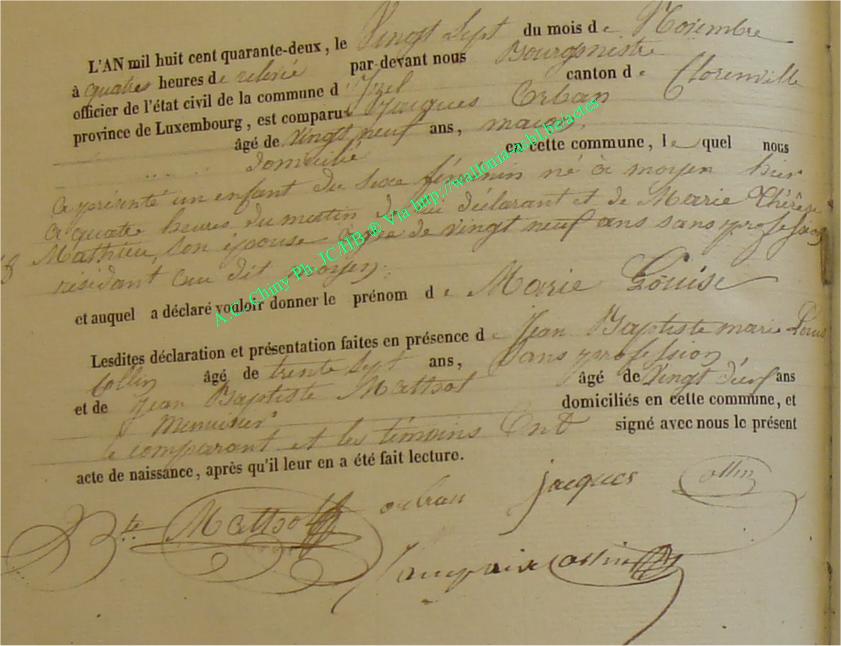 L'AN mil huit cent quarante-deux, le Vingt Sept du mois de Novembre
à quatres heures de relevée par-devant nous Bourgmestre
officier de l'état civil de la commune d' Izel canton de Florenville
province de Luxembourg, est comparu Jacques Orban
âgé de vingt neuf ans, maçon,
domicilié en cette commune, le quel nous
a présenté un enfant du sexe féminin né à moyen hier
à quatre heures du mattin de lui déclarant et de Marie Thérèse
Mathieu, son épouse agée de vingt neuf ans sans profession
résidant au dit moyen.
et auquel a déclaré vouloir donner le prénom de Marie Louise
Lesdites déclaration et présentation faites en présence de Jean Baptiste marie Louis
Collin âgé de trente sept ans, sans profession
et de Jean Baptiste Mathot âgé de vingt neuf ans
Menuisier domiciliés en cette commune, et
le comparant et les témoins Ont signé avec nous le présent
acte de naissance, après qu'il leur en a été fait lecture.
Bte Mathot orban jacques Collin
Collin
A.C. Chiny Ph. JC HB ® Via http://wallonia-asbl.be/actes